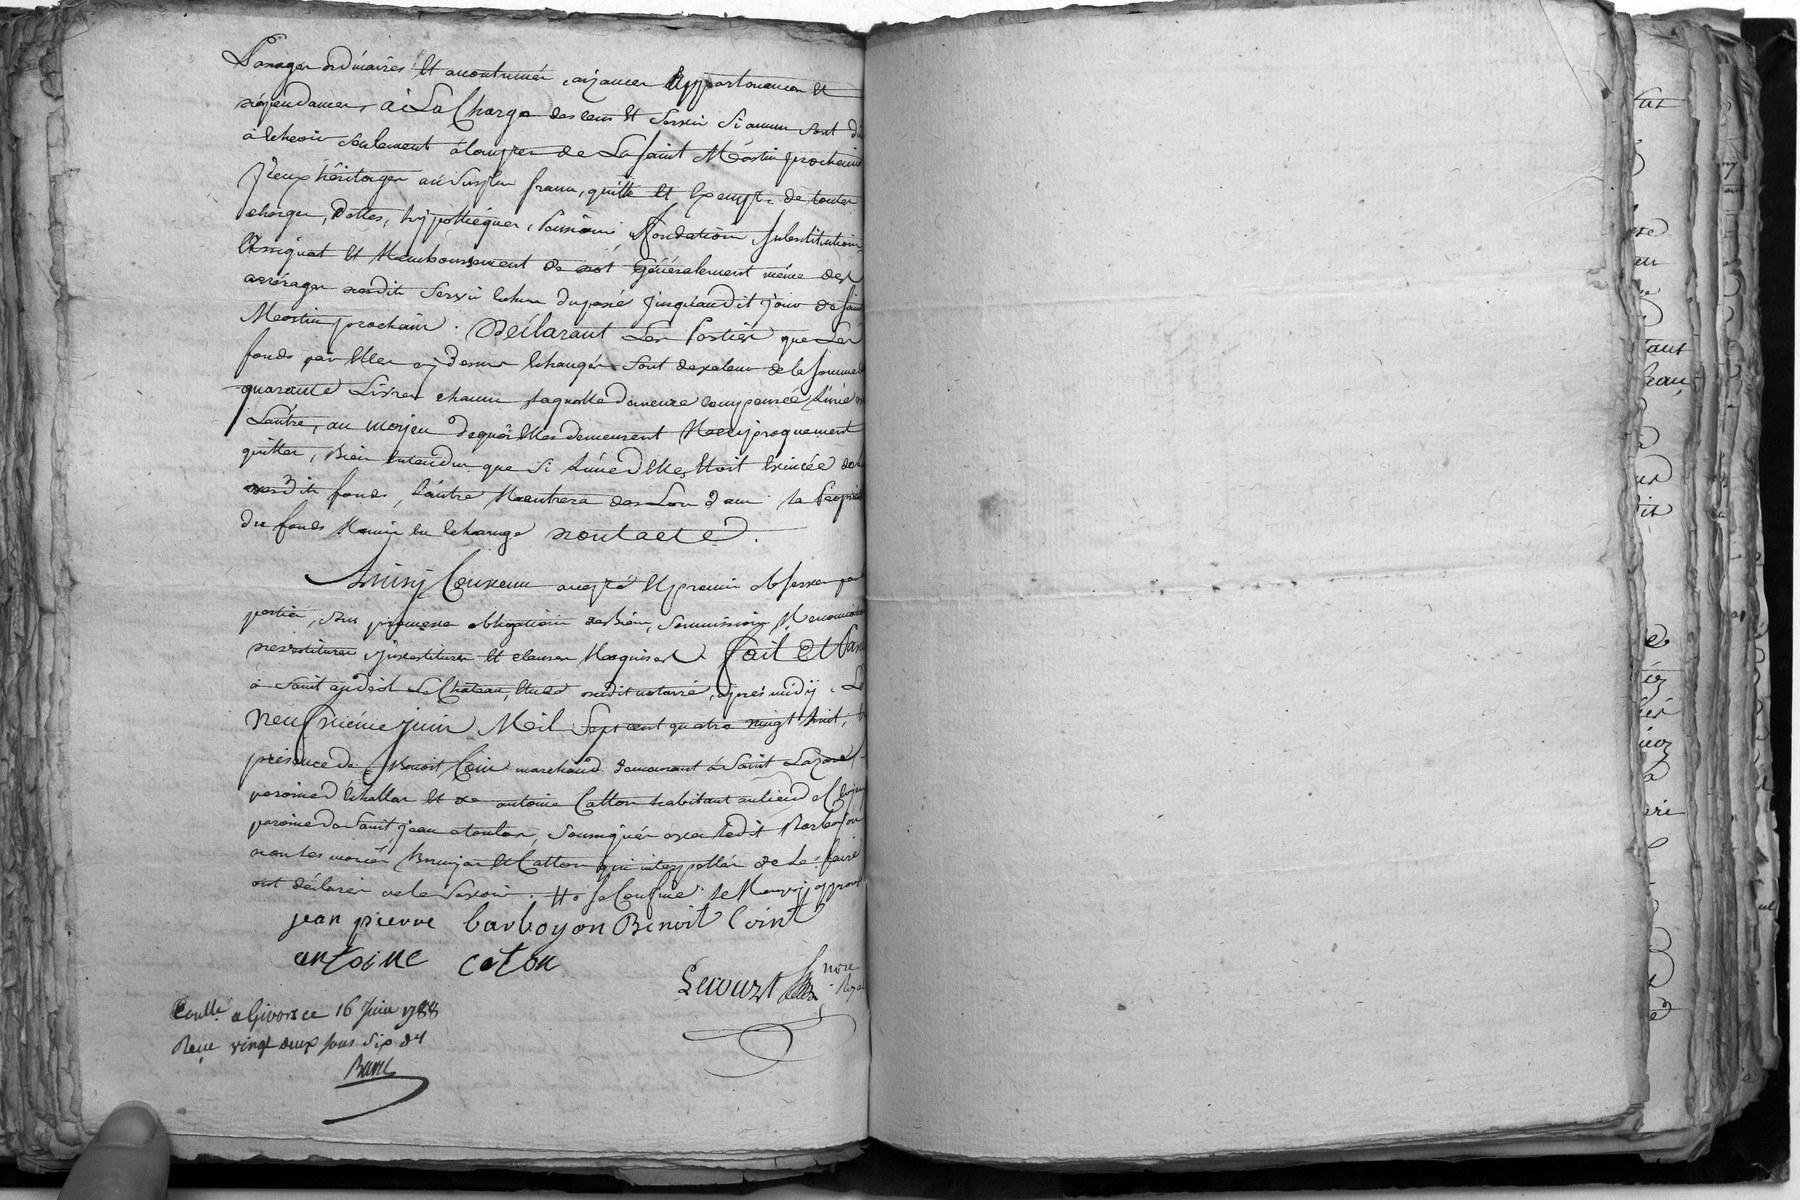 Passages ordinaires et acoutumés, aizances Appartenances et
dépendances, à La Charge des cens et Servis si aucuns sont dus
à échéoir seulement à compter de La Saint Martin prochain
Iceux héritages au Surplus francs, quitte et Exempts de toutes
charges, Dettes, hypothéques, Pensions, Fondations Substitutions
Assignat et Remboursement de dot généralement même des
arrérages desdits Servis échus du passé jusqu'audit jour de Saint
Martin prochain. Déclarant Les Parties que Les
fonds par Elles cy dessus échangés sont de valeur de la somme de
quarante Livres chacun laquelle demeure compensée L'une
L'autre, au moyen dequoi Elles demeurent Reciproquement
quittes, Bien Entendu que si L'une d'Elles Etoit Evincée
desdits fonds, L'autre Rentrera dès Lors dans la Propriété
du fonds Remis en échange dont acte.
Ainsy Convenu accepté Et promis observer par
parties, sous promesse obligation de Biens, soumissions, Renonciations
devestitures, investitures et clauses Requises. Fait Et Passé
à Saint andéol Le Château, Etude dudit notaire, après midy, Le
Neufvieme juin Mil Sept cent quatre vingt huit,
présence de Benoit Coin marchand demeurant à Saint Lazare
paroisse d'échallas et de antoine Catton habitant au lieu de
paroisse de Saint jean atoulas, soussignés avec Ledit Barboyon
non les mariés et Catton qui interpellés de Le faire
ont déclaré ne le savoir.
jean pierre barboyon Benoit Coint
antoine caton
Lecourt nore Royal
Conllé a Givors ce 16 Juin 1788
Reçu vingt deux sous six drs